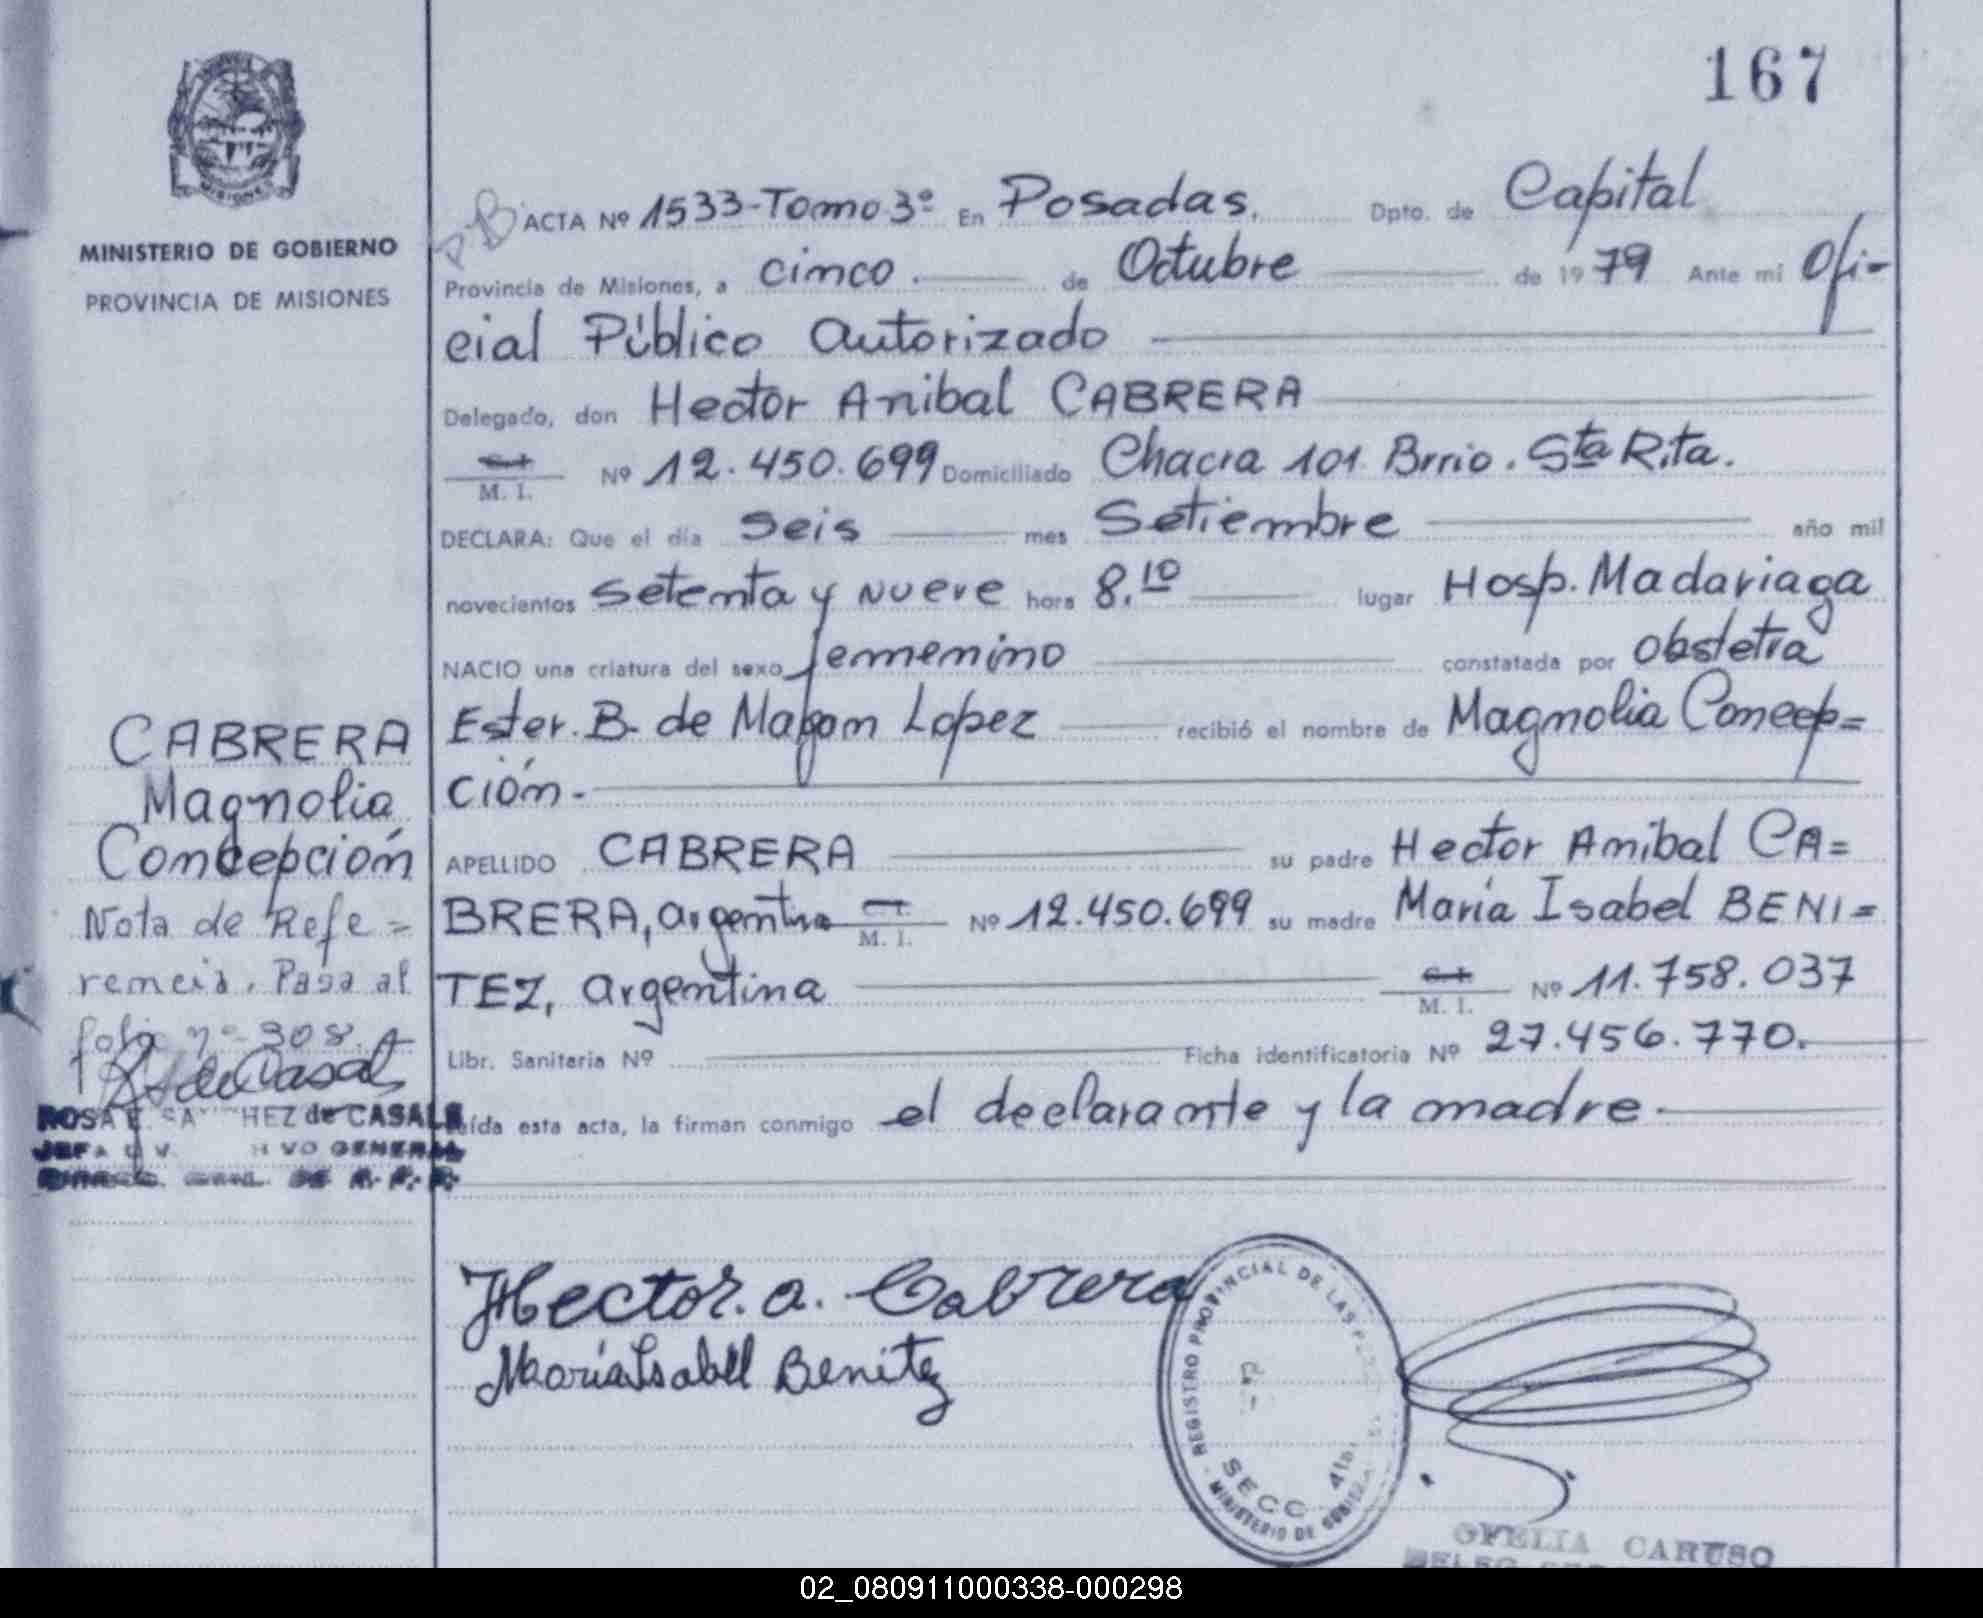 167
MISIONES
MINISTERIO DE GOBIERNO
PROVINCIA DE MISIONES
ACTA Nº 1533-Tomo 3º En Posadas, Dpto. de Capital
Provincia de Misiones, a cinco de Octubre de 1979 Ante mi Ofi-
cial Público Autorizado
Delegado, don Hector Anibal CABRERA
C.I. M. I. Nº 12.450.699 Domiciliado Chacra 101 Brrio. Sta Rita.
DECLARA: Que el día Seis mes Setiembre año mil
novecientos setenta y nueve hora 8,10 lugar Hosp. Madariaga
NACIO una criatura del sexo femenino constatada por Obstetra
Ester. B. de Lopez recibió el nombre de Magnolia Concep=
ción.-
APELLIDO CABRERA su padre Hector Anibal CA=
BRERA, argentino C.I. M. I. Nº 12.450.699 su madre María Isabel BENI=
TEZ, argentina C.I. M. I. Nº 11.758.037
Libr. Sanitaria Nº Ficha identificatoria Nº 27.456.770.
Leída esta acta, la firman conmigo el declarante y la madre.
CABRERA
Magnolia
Concepción
Nota de Refe=
rencia. Pasa al
folio nº 308.
R. S. de Casals
ROSA E. SANCHEZ de CASALS
JEFA ARCHIVO GENERAL
DIRECC. GRAL. DE
Hector. A. Cabrera
María Isabel Benitez
REGISTRO PROVINCIAL DE LAS
SECC
MINISTERIO DE GOBIERNO
OFELIA CARUSO
02_080911000338-000298